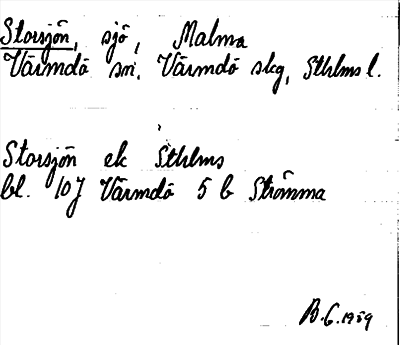 Storsjön, sjö, Malma
Värmdö sn. Värmdö skg, Sthlms l.
Storsjön ek Sthlms
bl. 107 Värmdö 5 b Strömma
B.G. 1959